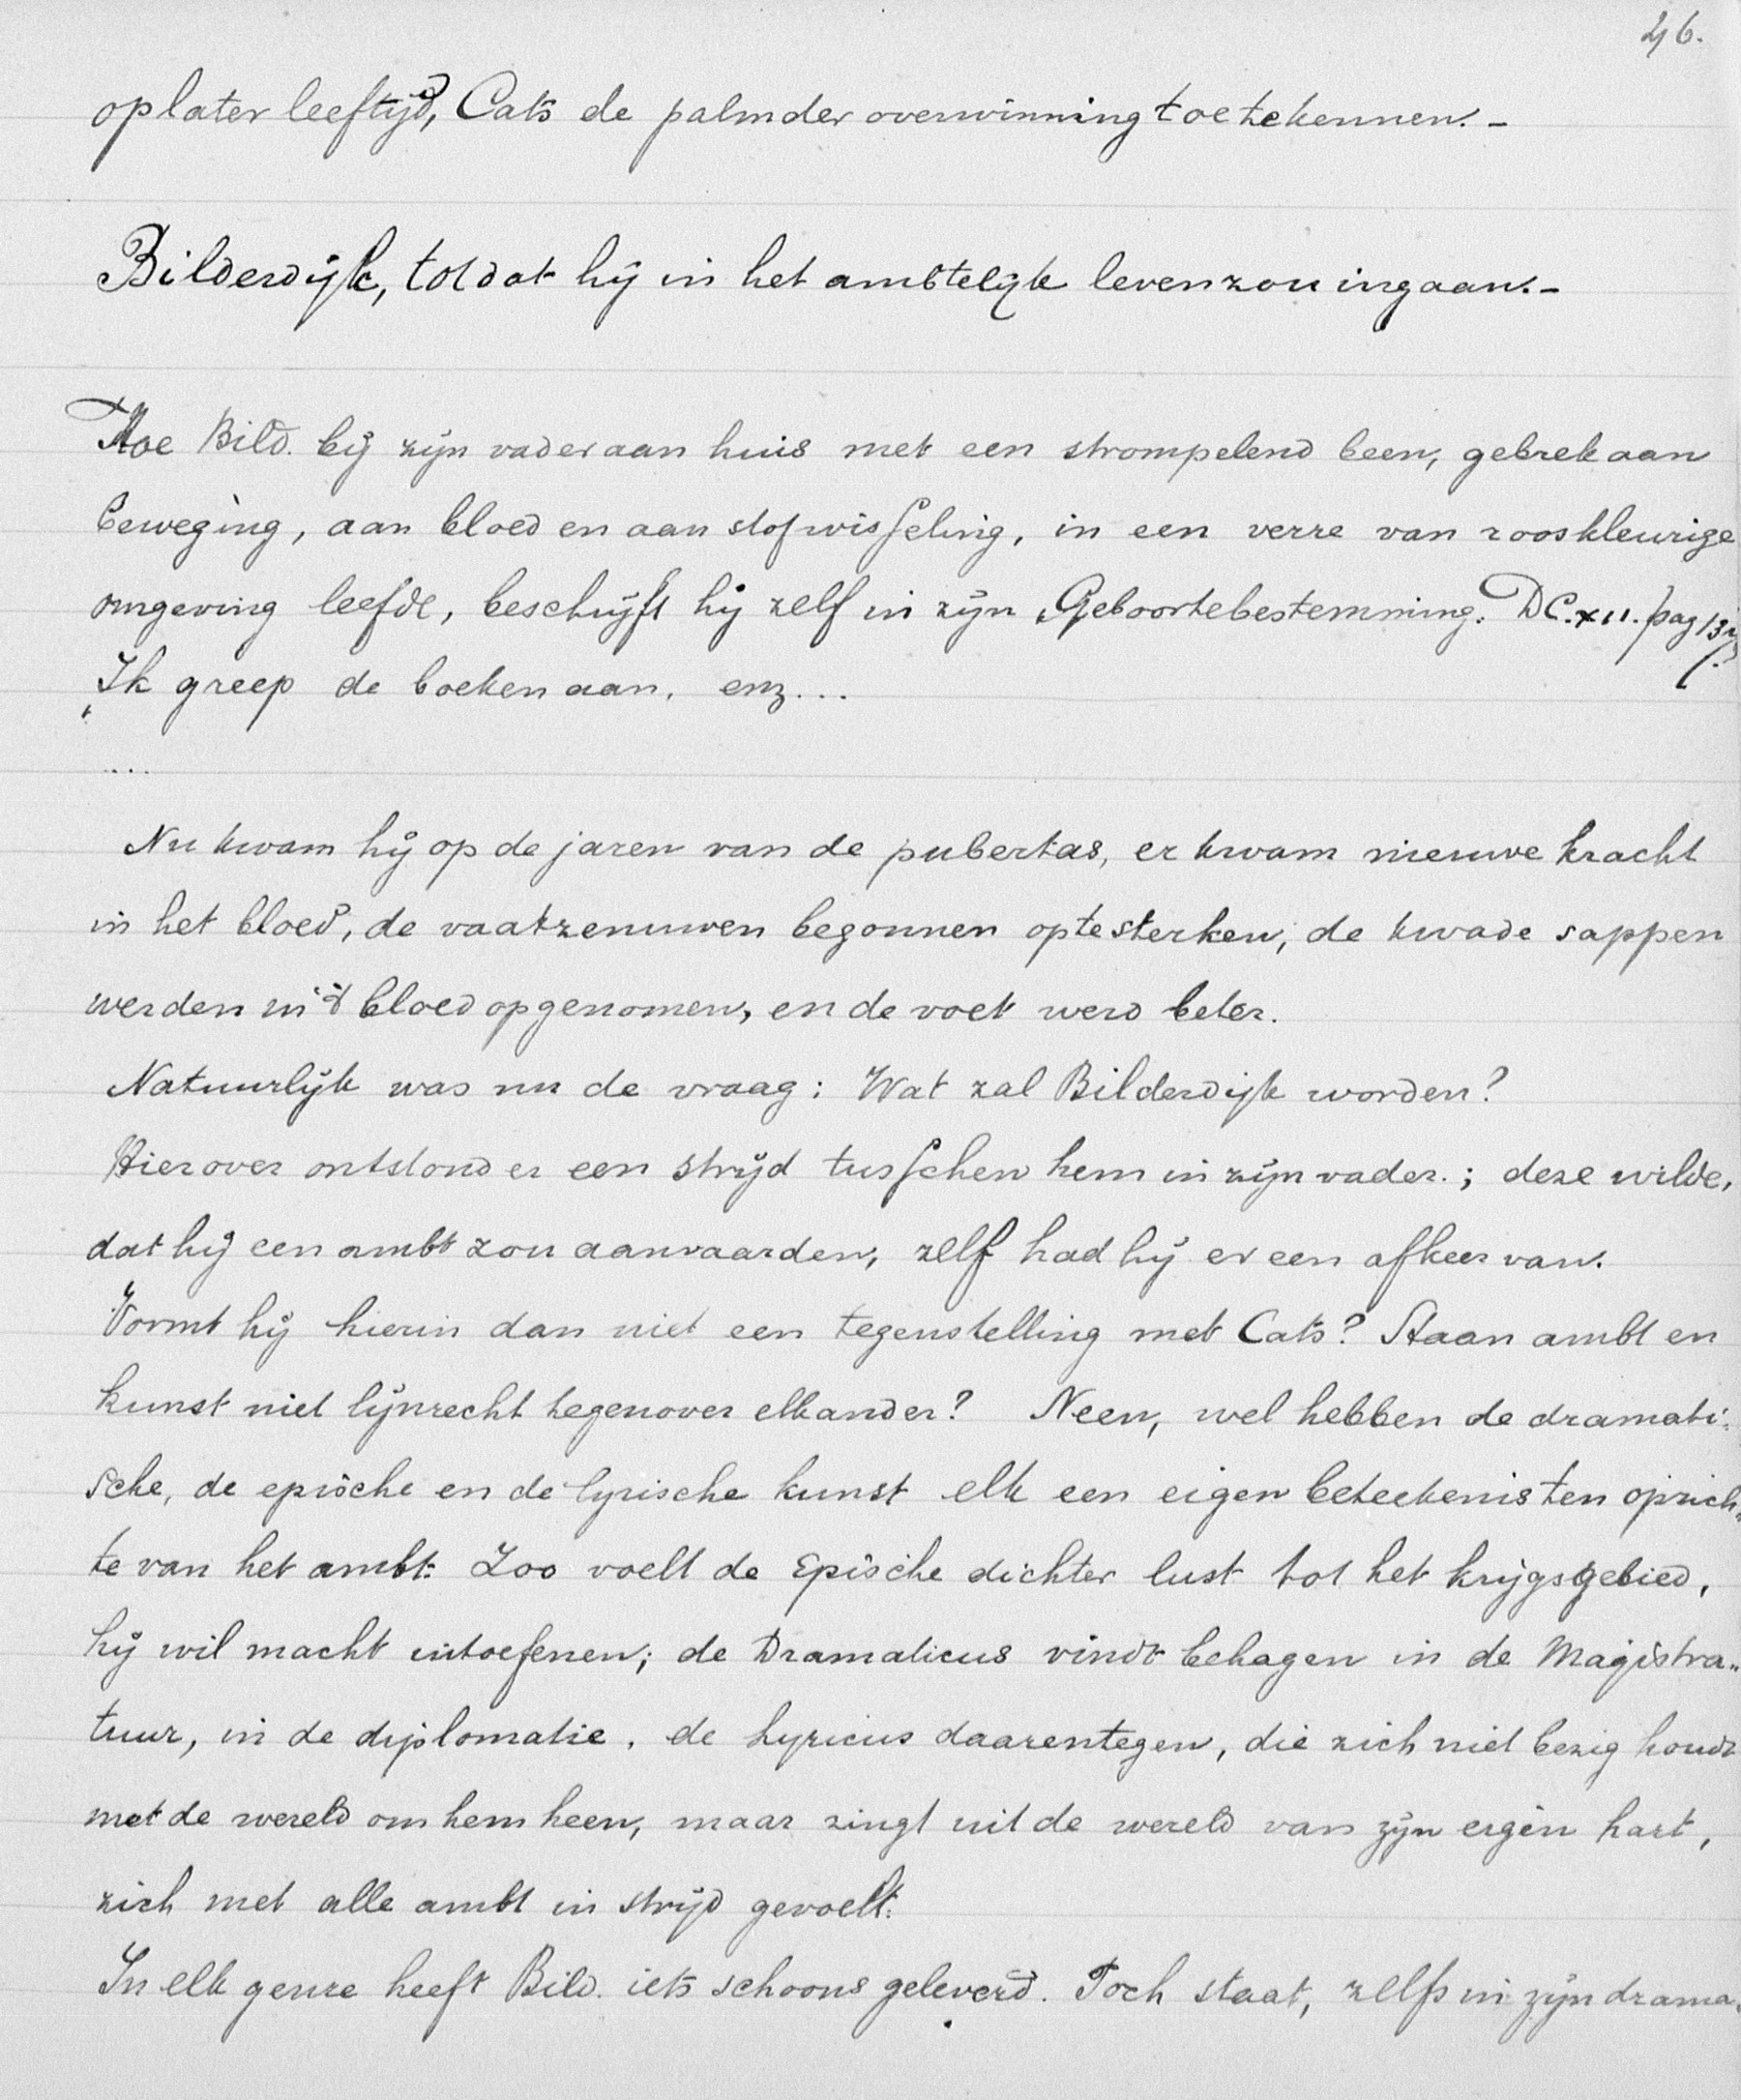 46.
op later leeftijd, Cats de palm der overwinning toe te kennen. -
Bilderdijk, totdat hij in het ambtelijk leven zou ingaan. -
Hoe Bild. bij zijn vader aan huis met een strompelend been, gebrek aan
beweging, aan bloed en aan stofwisseling, in een verre van rooskleurige
omgeving leefde, beschrijft hij zelf in zijn „Geboortebestemming." DC. XII. pag
„Ik greep de boeken aan, enz...
...
Nu kwam hij op de jaren van de pubertas, er kwam nieuwe kracht
in het bloed, de vaatzenuwen begonnen op te sterken, de kwade sappen
werden in 't bloed opgenomen, en de voet werd beter.
Natuurlijk was nu de vraag: Wat zal Bilderdijk worden?
Hierover ontstond er een strijd tusschen hem in zijn vader.; deze wilde,
dat hij een ambt zou aanvaarden, zelf had hij er een afkeer van.
Vormt hij hierin dan niet een tegenstelling met Cats? Staan ambt en
kunst niet lijnrecht tegenover elkander? Neen, wel hebben de dramati-
sche, de epische en de lyrische kunst elk een eigen beteekenis ten opzich„
te van het ambt. Zoo voelt de Epische dichter lust tot het krijgsgebied,
hij wil macht uitoefenen; de Dramaticus vindt behagen in de Magistra„
tuur, in de diplomatie. de Lyricus daarentegen, die zich niet bezig houdt
met de wereld om hem heen, maar zingt uit de wereld van zijn eigen hart,
zich met alle ambt in strijd gevoelt.
In elk genre heeft Bild. iets schoons geleverd. Toch staat, zelfs in zijn drama-